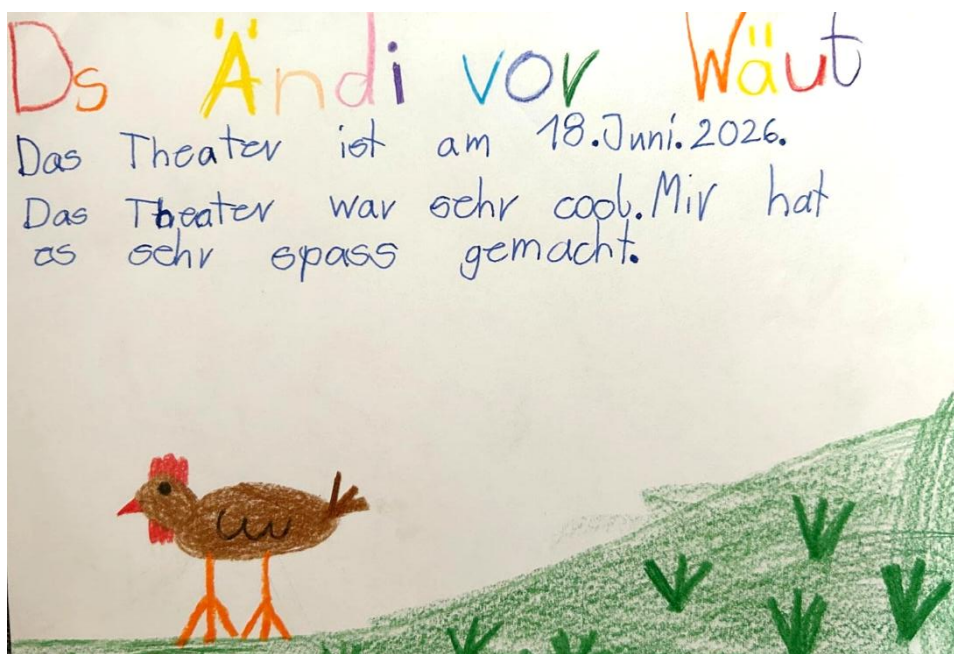 Ds Ändi vor Wäut
Das Theater ist am 18.Juni.2026.
Das Theater war sehr cool. Mir hat
es sehr spass gemacht.